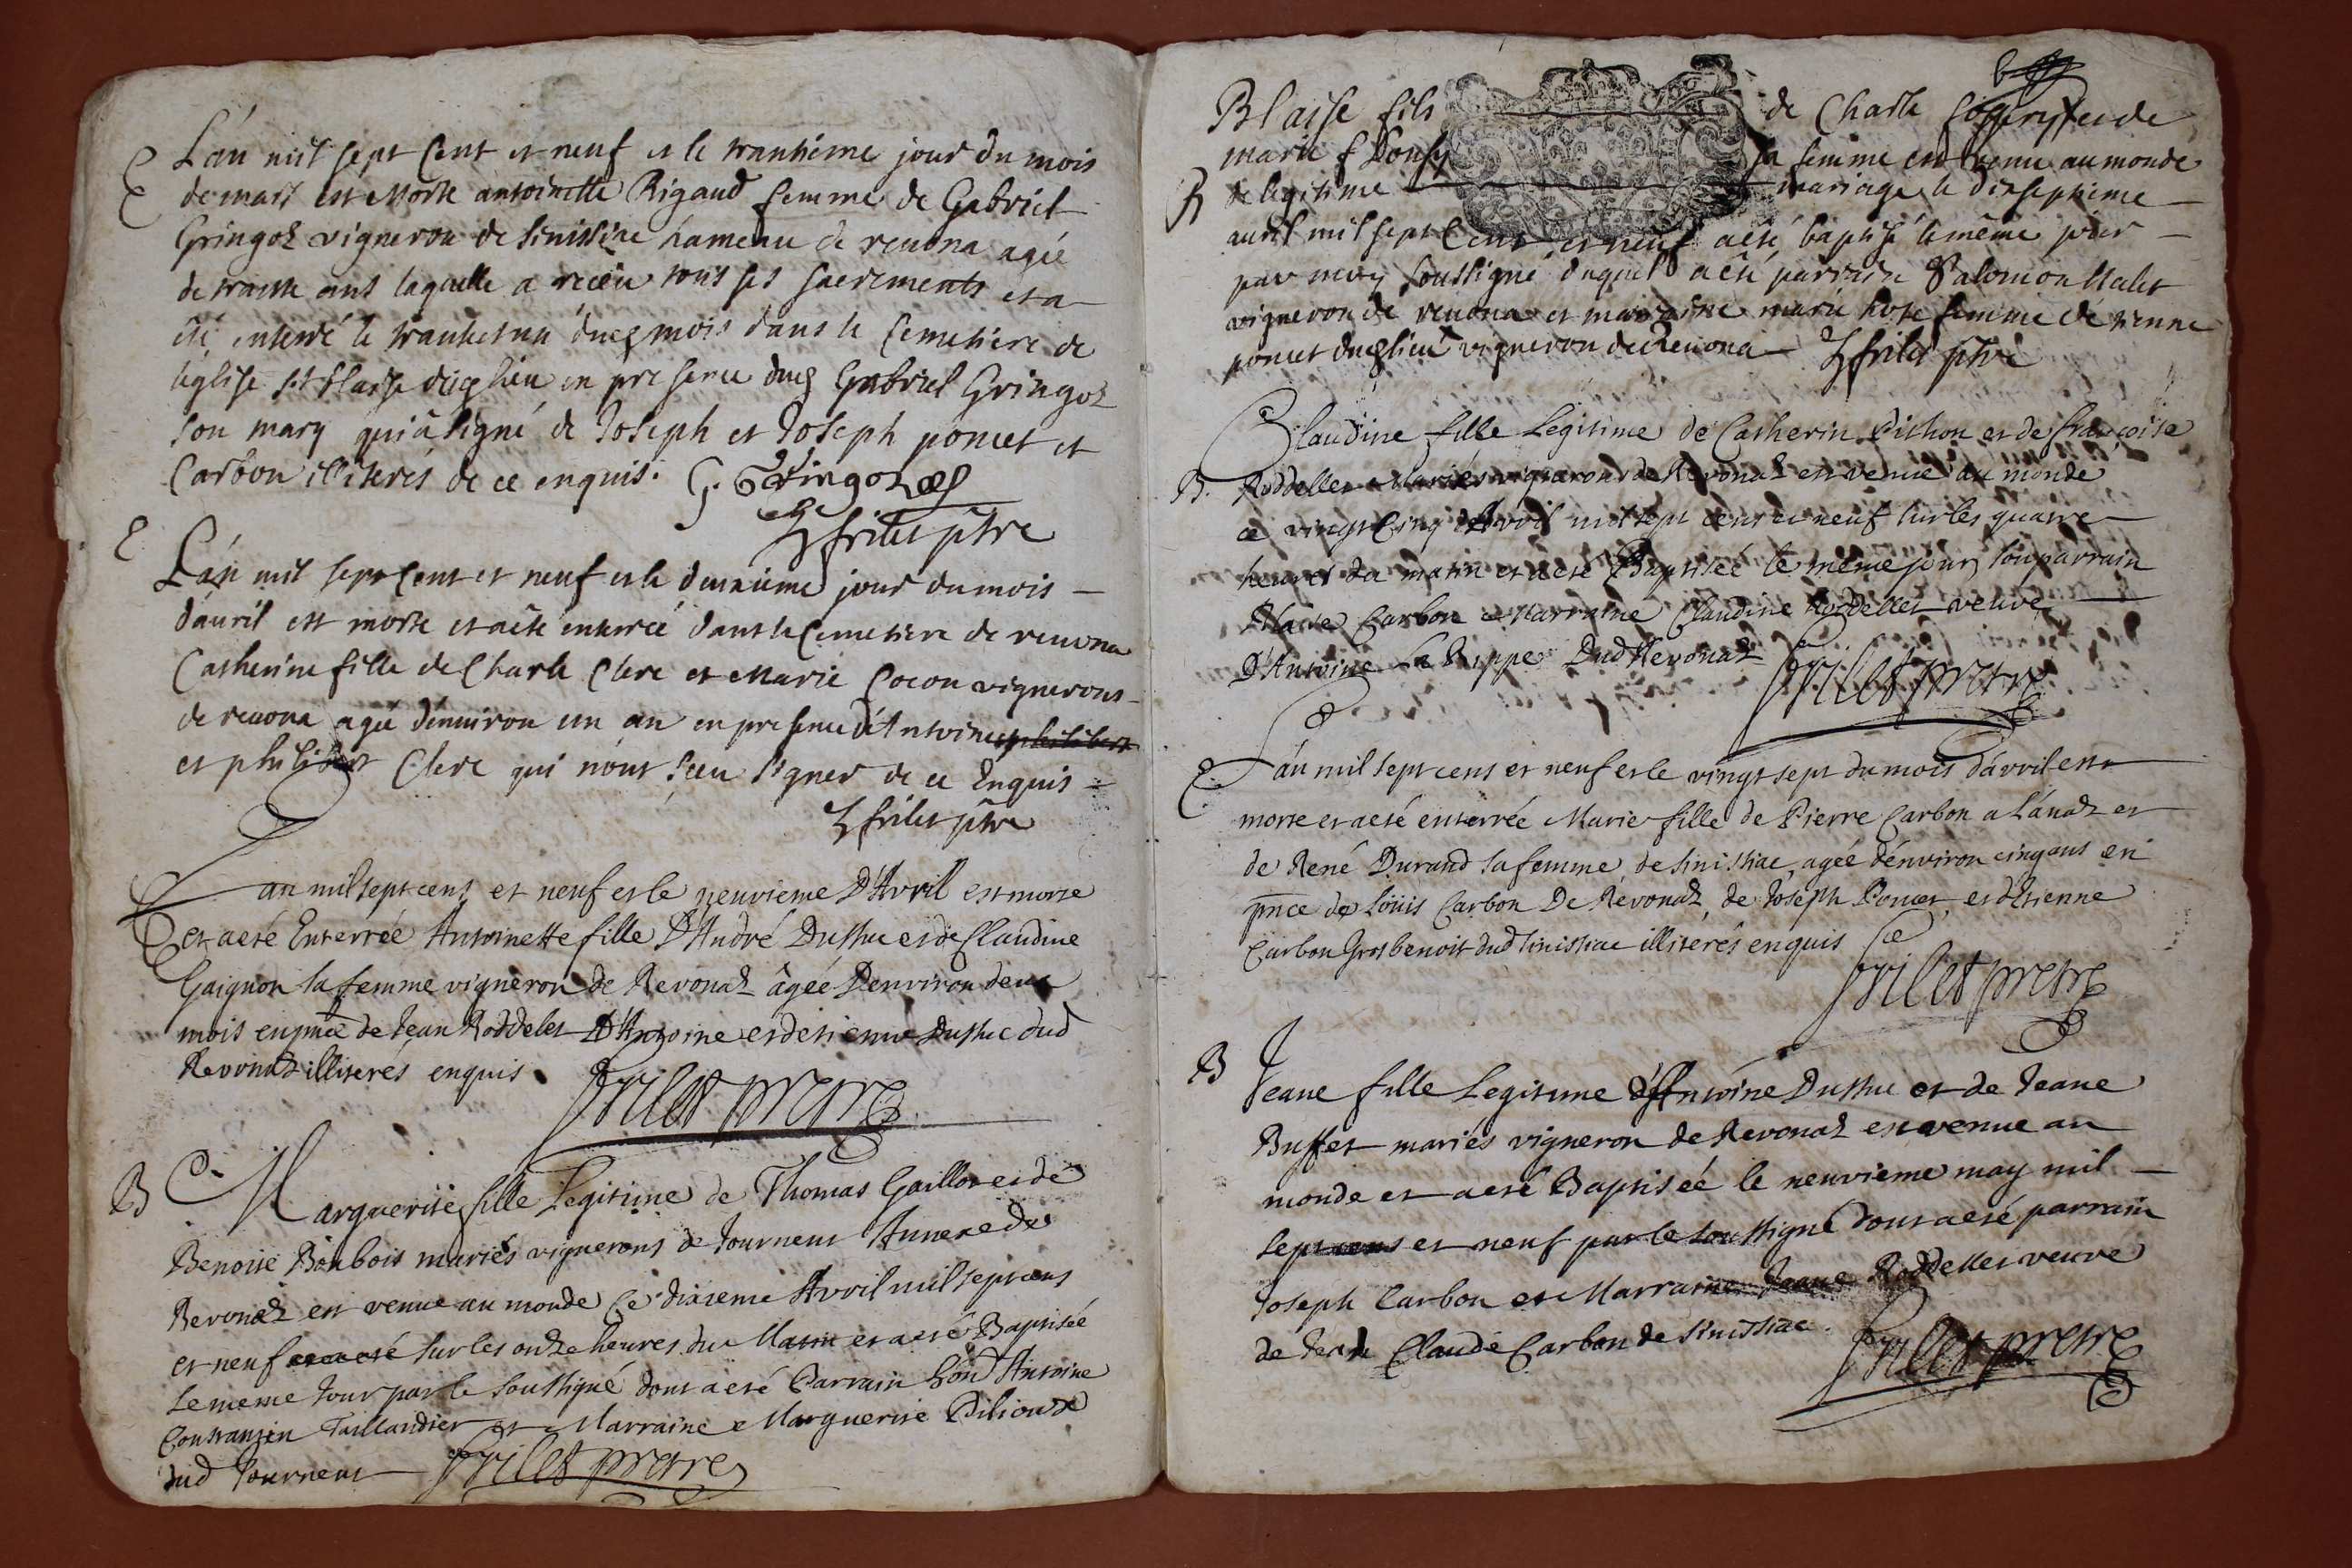 E L'an mil sept Cent et neuf et le trantiéme jour du mois
de mars est Morte antoinette Rigaud femme de Gabriel
Gringoz vigneron de Sinissiae hameau de reuona agée
de trante ans laquelle a receu tous ses sacrements et a
été enterré le trantet un ducq mois dans le Cemetiere de
l'église St Blaise ducq lieu en presence ducq Gabriel Gringoz
son mary qui a signé de Joseph et Joseph poncet et
Carbon illiterés de ce enquis. G. Gringoz
frilet ptre
E L'an mil sept Cent et neuf et le deuxiéme jour du mois
d'auril est morte et a été enterrée dans le Cemetiere de reuona
Catherine fille de Charle Clerc et Marie Cocon vignerons
de reuona agée d'enuiron un an en presence d'Antoine
et philibert Clerc qui n'ont sceu signer de ce Enquis
frilet ptre
L'an mil sept cens et neuf et le neuvieme D'Avril est morte
E et a eté Enterrée Antoinette fille D'André Duthuc et de Claudine
Gaignon sa femme vigneron de Revonaz âgée D'environ deux
mois en pnce de Jean Roddelet D'Antoine et d'etienne Duthuc dud
Revonaz illiterés enquis
frilet pretre
B Marguerite fille Legitime de Thomas Gaillot et de
Benoite Bonbois mariés vignerons de Journeus Annexe de
Revonaz est venue au monde ce dixieme Avril mil sept cens
et neuf sur les onze heures du Matin et a eté Baptisée
le meme Jour par le soussigné dont a eté Parrain hon Antoine
Constanzin Taillandier et Marraine Marguerite
dud Journeus frilet pretre
Blaise fils de Charle et de
marie f sa femme est venu au monde
B de legitime mariage le dixseptieme
auril mil sept Cent et neuf a eté baptisé le même jour
par moy soussigné duquel a été parrain Salomon Malet
vigneron de reuona et marraine marie femme de
poncet ducq lieu vigneron de Reuona frilet ptre
Claudine fille Legitime de Catherin Pithon et de françoise
B. Roddellet Mariés vignerons de Revonaz est venue au monde
ce vingt Cinq Avril mil sept cens et neuf sur les quatre
heures du matin et a eté Baptisée le même jour, son parrain
Blaise Carbon Marraine Claudine Roddellet veuve
D'Antoine La Grippe Dud Revonaz
frilet pretre
E. L'an mil sept cens et neuf et le vingt sept du mois d'avril est
morte et a eté enterrée Marie fille de Pierre Carbon a Lánaz et
de René Durand sa femme de sinissiac agée d'environ cinq ans en
pnce de Loüis Carbon De Revonaz de Joseph Poncet et d'Etienne
Carbon Gros benoit dud sinissiac illiterés enquis
frilet pretre
B Jeane fille Legitime d'Antoine Duthuc et de Jeane
Buffet mariés vigneron de Revonaz est venue au
monde et a eté Baptisée le neuvieme may mil
sept cens et neuf par le soussigné dont a eté parrain
Joseph Carbon et Marraine Jeane Roddellet veuve
de Jean Claude Carbon de sinissiac.
frilet pretre